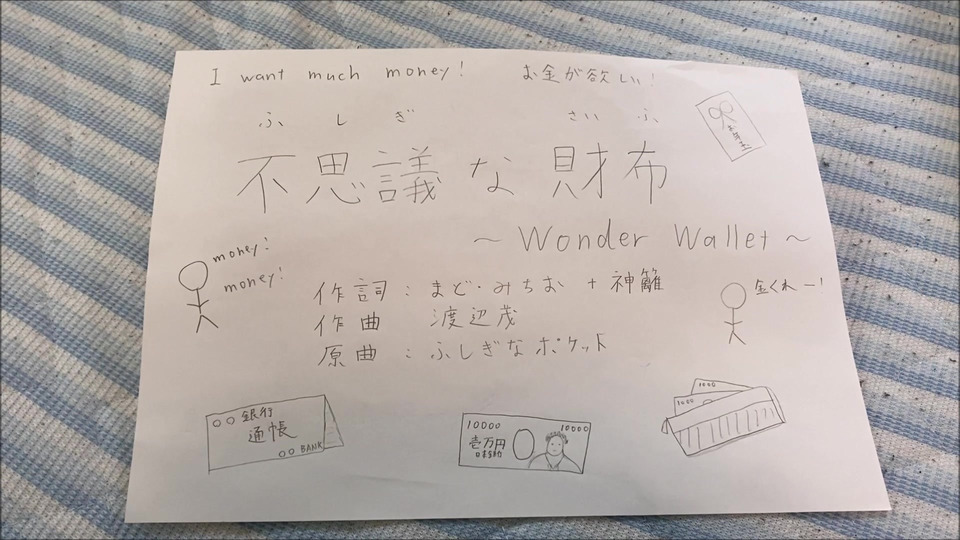 I want much money! お金が欲しい!
ふしぎ さいふ
不思議な財布
~ Wonder Wallet ~
money!
money!
作詞:まど・みちお + 神籬
作曲 渡辺茂
原曲:ふしぎなポケット
金くれー!
○○銀行
通帳
○○BANK
10000 10000
壱万円
1000
1000